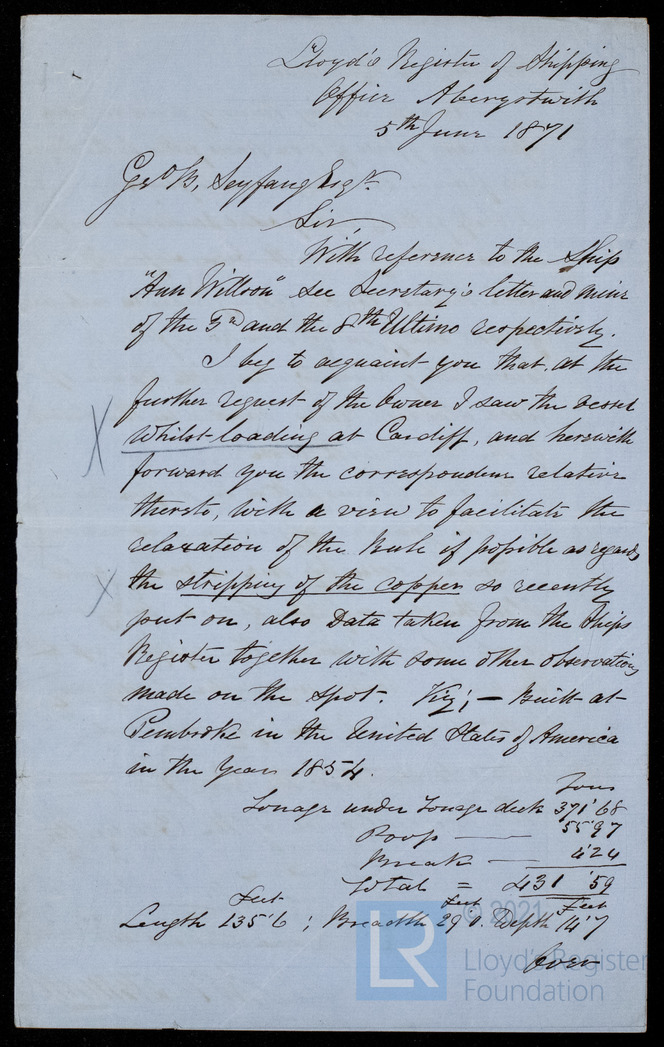 Lloyd's Register of Shipping
Office Aberystwith
5th June 1871
Geo B, Seyfang Esqr.
Sir,
With reference to the Ship
"Ann Willson" see Secretary's letter and mine
of the 5th and the 8th Ultimo respectively.
I beg to acquaint you that, at the
further request of the Owner I saw the vessel
whilst loading at Cardiff, and herewith
forward you the correspondence relative
thereto, with a view to facilitate the
relaxation of the Rule if possible as regards
the stripping of the copper so recently
put on, also Data taken from the Ships
Register together with some other observations
made on the spot. Viz; — Built at
Pembroke in the United States of America
in the Year 1854.
Tons
Tonage under Tonage deck 371'68
Poop — 55'97
Break — 4'24
Total = 431'59
Feet Feet Feet
Length 135'6 ; Breadth 29'0. Depth 14'7
Over
© 2021
LR Lloyd's Register
Foundation